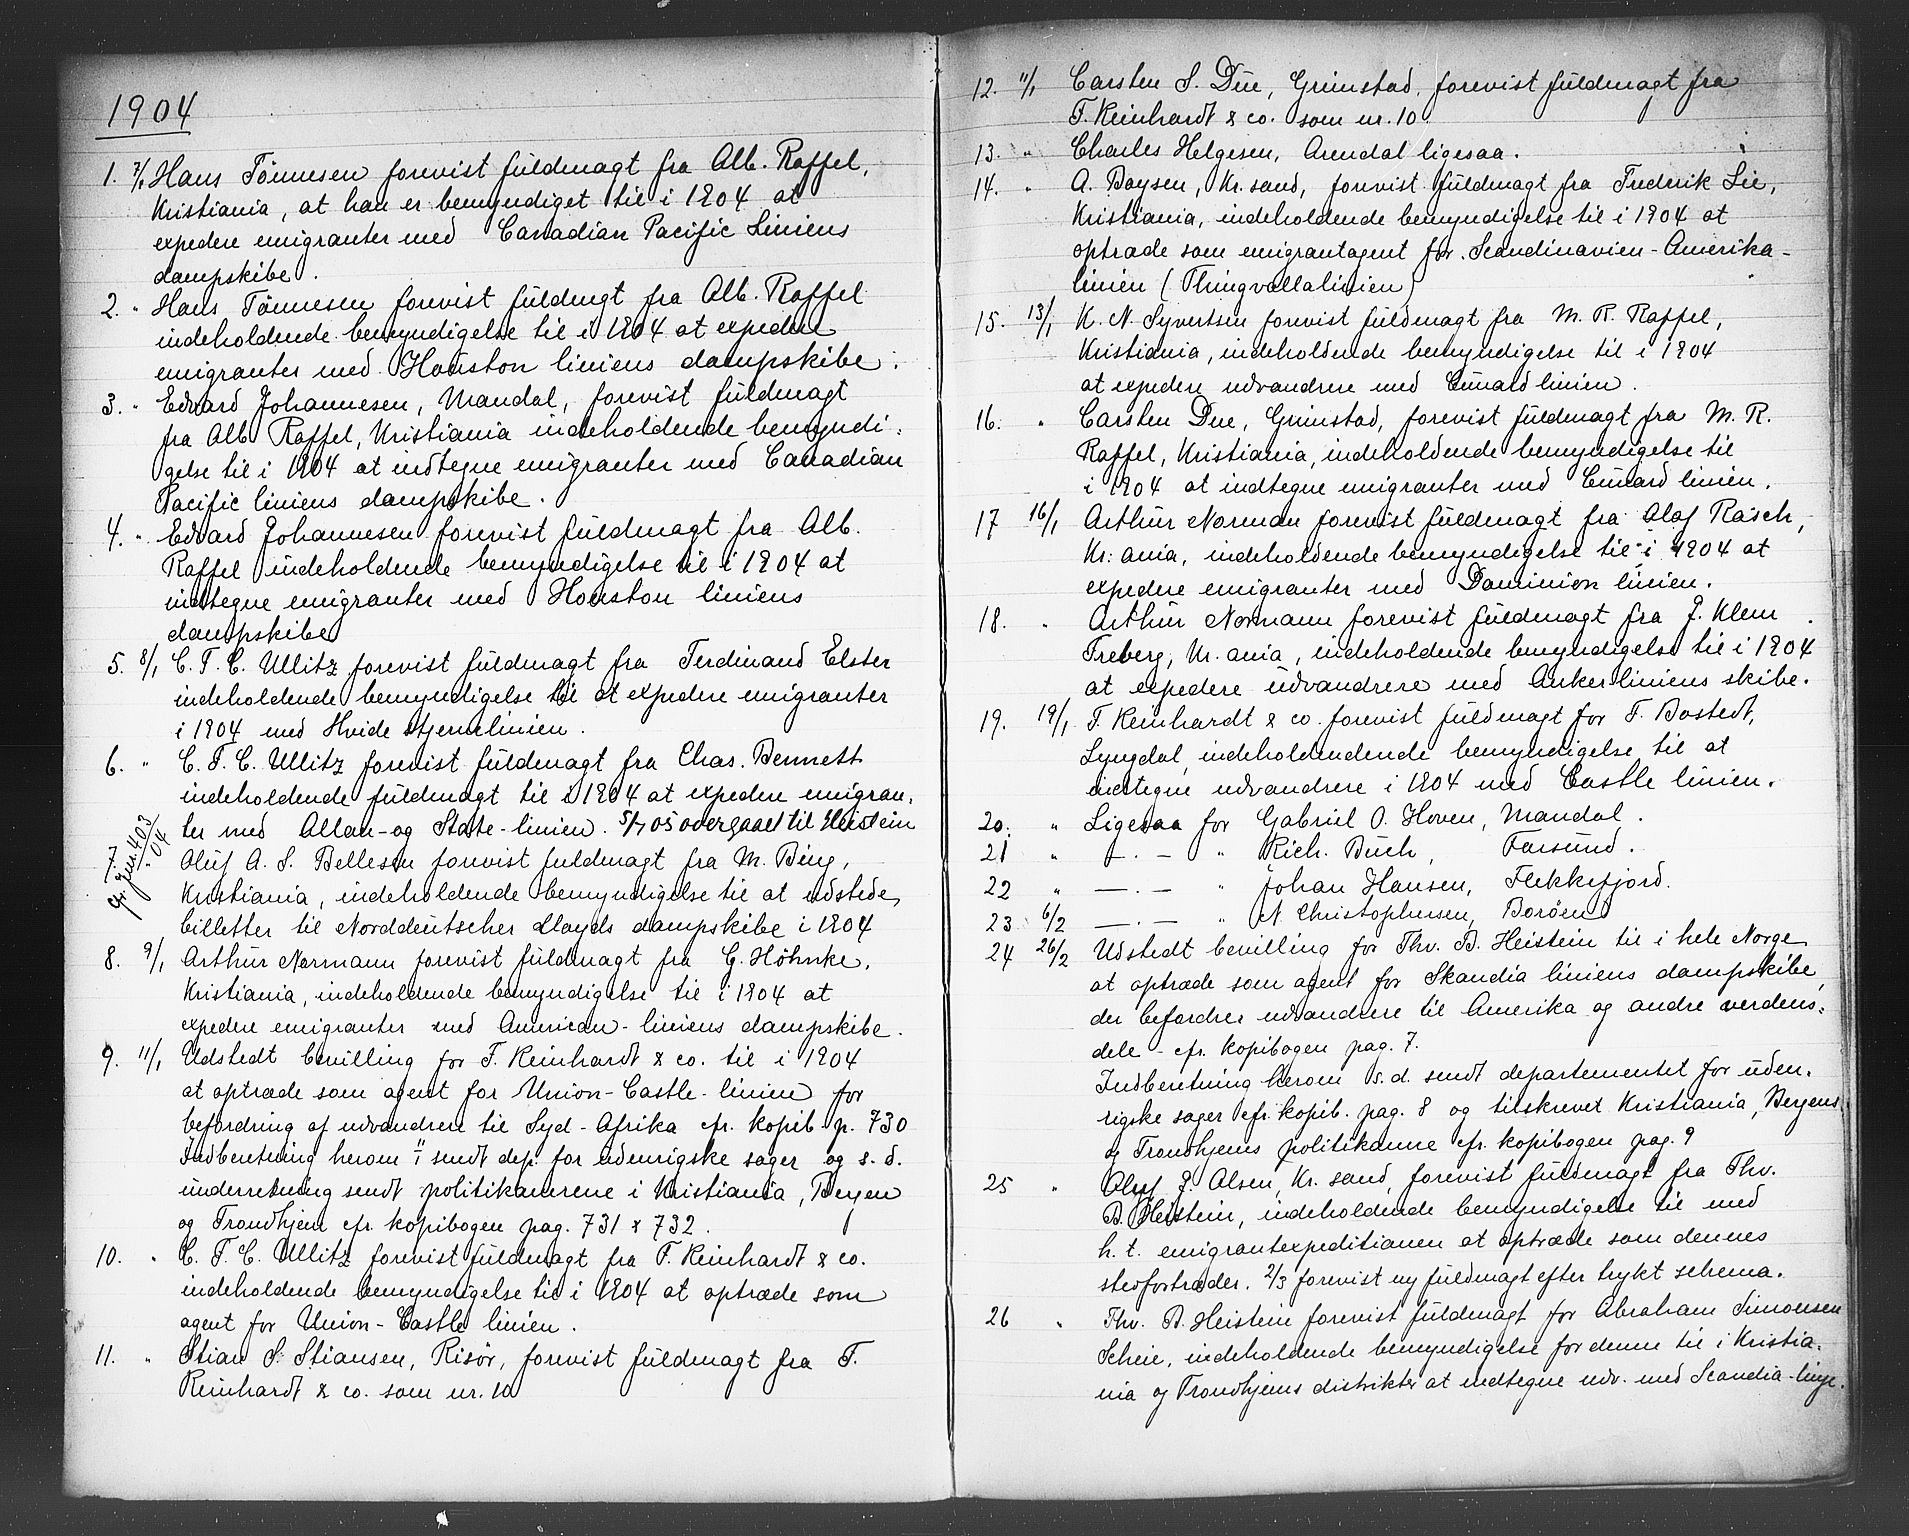 1904
1. 7/1 Hans Tönnesen forevist fuldmagt fra Alb. Raffel,
Kristiania, at han er bemyndiget til i 1904 at
expedere emigranter med Canadian Pacific Liniens
dampskibe.
2. " Hans Tönnesen forevist fuldmgt fra Alb. Raffel
indeholdende bemyndigelse til i 1904 at expedere
emigranter med Houston liniens dampskibe.
3. " Edvard Johannesen, Mandal, forevist fuldmagt
fra Alb Raffel, Kristiania indeholdende bemyndi-
gelse til i 1904 at indtegne emigranter med Canadian
Pacific liniens dampskibe.
4. " Edvard Johannesen forevist fuldmagt fra Alb.
Raffel indeholdende bemyndigelse til i 1904 at
indtegne emigranter med Houston liniens
dampskibe
5. 8/1 C. F. C. Ullitz forevist fuldmagt fra Ferdinand Elster
indeholdende bemyndigelse til at expedere emigranter
i 1904 med Hvide stjernelinien.
6. " C. F. C. Ullitz forevist fuldmagt fra Chas. Bennett
indeholdende fuldmagt til i 1904 at expedere emigran-
ter med Allan- og State-linien. 5/7 05 overgaaet til Heistein
7. " Oluf A. S. Bellesen forevist fuldmagt fra M. Bing,
cfr. Jur. 403/04
Kristiania, indeholdende bemyndigelse til at udstede
billetter til Norddeutscher Lloyds dampskibe i 1904
8. 9/1 Arthur Normann forevist fuldmagt fra G. Höhnke,
Kristiania, indeholdende bemyndigelse til i 1904 at
expedere emigranter med American-liniens dampskibe.
9. 11/1 Udstedt bevilling for F. Reinhardt & co. til i 1904
at optræde som agent for Union-Castle-linien for
befordring af udvandrere til Syd-Afrika cfr. kopib p. 730
Indberetning herom 11/1 sendt dep. for udenrigske sager og s. d.
underretning sendt politikamrene i Kristiania, Bergen
og Trondhjem cfr. kopibogen pag. 731 & 732.
10. " C. F. C. Ullitz forevist fuldmagt fra F. Reinhardt & co.
indeholdende bemyndigelse til i 1904 at optræde som
agent for Union-Castle linien.
11. " Stian S. Stiansen, Risör, forevist fuldmagt fra F.
Reinhardt & co. som nr. 10
12. 11/1 Carsten S. Due, Grimstad, forevist fuldmagt fra
F. Reinhardt & co. som nr. 10
13. " Charles Helgesen, Arendal ligesaa.
14. " A. Boysen, Kr. sand, forevist fuldmagt fra Frederik Lie,
Kristiania, indeholdende bemyndigelse til i 1904 at
optræde som emigrantagent for Scandinavien-Amerika-
linien (Thingvallalinien)
15. 13/1 K. N. Syvertsen forevist fuldmagt fra M. R. Raffel,
Kristiania, indeholdende bemyndigelse til i 1904
at expedere udvandrere med Cunard linien.
16. " Carsten Due, Grimstad, forevist fuldmagt fra M. R.
Raffel, Kristiania, indeholdende bemyndigelse til
i 1904 at indtegne emigranter med Cunard linien.
17 16/1 Arthur Norman forevist fuldmagt fra Olaf Rasch,
Kr: ania, indeholdende bemyndigelse til i 1904 at
expedere emigranter med Dominion linien.
18. " Arthur Normann forevist fuldmagt fra J. Klem
Treberg, Kr. ania, indeholdende bemyndigelse til i 1904
at expedere udvandrere med Ankerliniens skibe.
19. 19/1 F. Reinhardt & co. forevist fuldmagt for F. Bostedt,
Lyngdal, indeholdendende bemyndigelse til at
indtegne udvandrere i 1904 med Castle linien.
20. " Ligesaa for Gabriel O. Hoven, Mandal.
21 " —.— " Rich. Buch, Farsund.
22 " —.— " Johan Hansen, Flekkefjord.
23 6/2 —.— " N. Christophersen, Boröen
24 26/2 Udstedt bevilling for Thv. B. Heistein til i hele Norge
at optræde som agent for Skandia liniens dampskibe,
der befordrer udvandrere til Amerika og andre verdens-
dele - cfr. kopibogen pag. 7.
Indberetning herom s. d. sendt departementet for uden-
rigske sager cfr. kopib. pag. 8 og tilskrevet Kristiania, Bergens
og Trondhjems politikamre cfr. kopibogen pag. 9
25 " Oluf J. Olsen, Kr. sand, forevist fuldmagt fra Thv.
B. Heistein, indeholdende bemyndigelse til med
h. t. emigrantexpeditionen at optræde som dennes
stedfortræder. 2/3 forevist ny fuldmagt efter trykt schema.
26 " Thv. B. Heistein forevist fuldmagt for Abraham Simonsen
Scheie, indeholdende bemyndigelse for denne til i Kristia-
nia og Trondhjems distrikter at indtegne udv. med Scandia-linje.